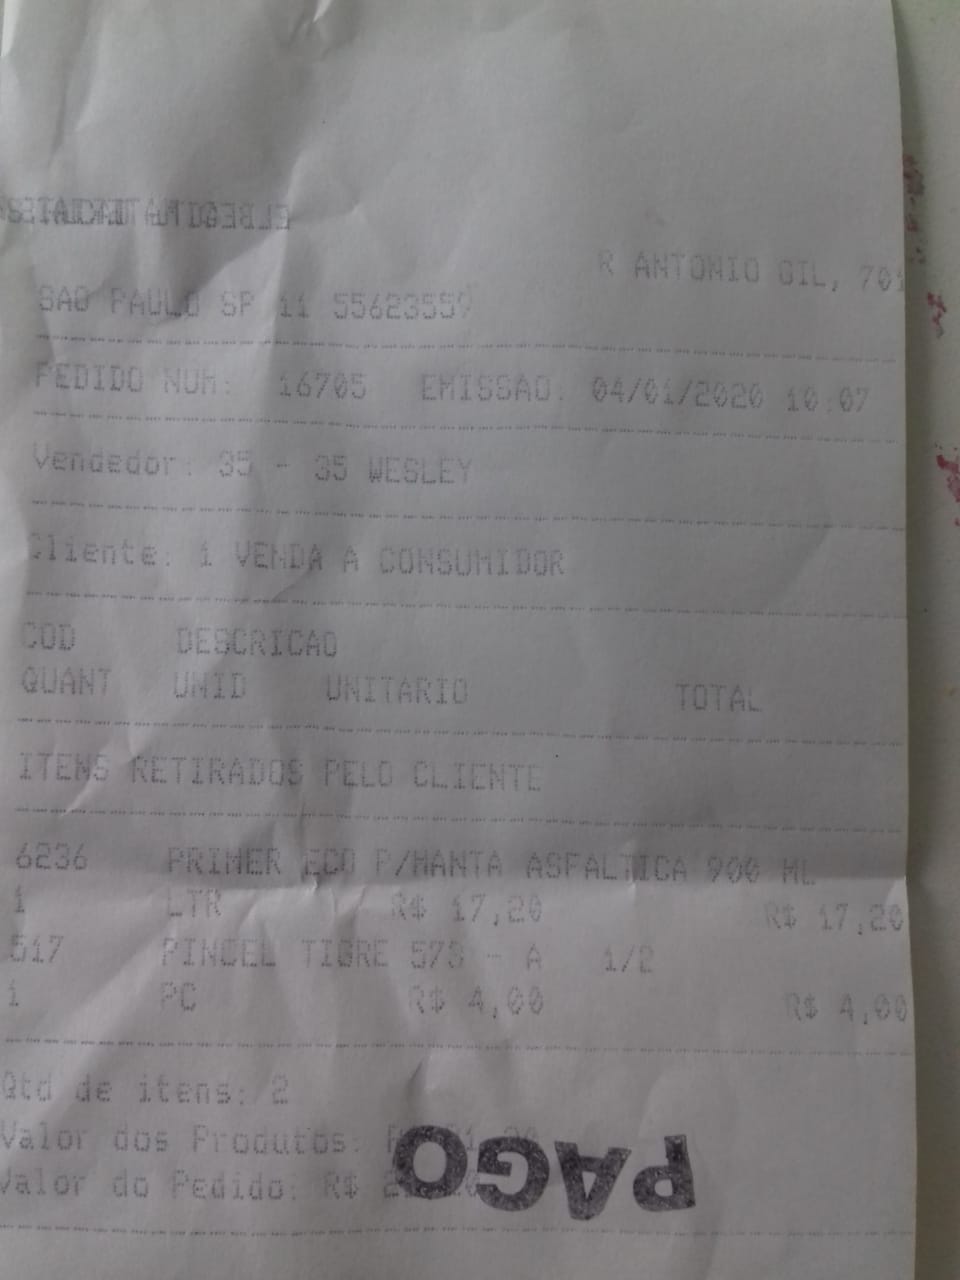 R ANTONIO GIL, 701
SAO PAULO SP 11 55623559
PEDIDO NUM: 16705 EMISSAO: 04/01/2020 10:07
Vendedor: 35 - 35 WESLEY
Cliente: 1 VENDA A CONSUMIDOR
COD DESCRICAO
QUANT UNID UNITARIO TOTAL
ITENS RETIRADOS PELO CLIENTE
6236 PRIMER ECO P/MANTA ASFALTICA 900 ML
1 LTR R$ 17,20 R$ 17,20
517 PINCEL TIGRE 578 - A 1/2
1 PC R$ 4,00 R$ 4,00
Qtd de itens: 2
Valor dos Produtos:
Valor do Pedido: R$
PAGO